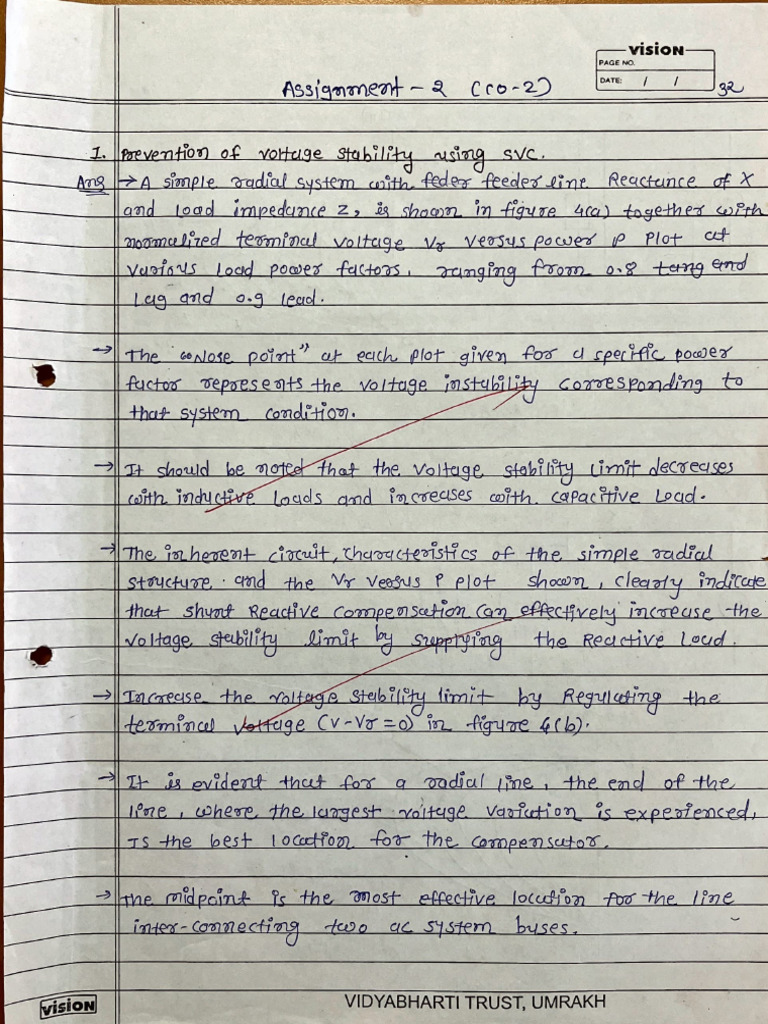 vision
PAGE NO.
DATE: / /
Assignment - 2 (CO-2)
32
1. Prevention of voltage stability using SVC.
Ans → A simple radial system with feder feeder line Reactance of X
and load impedance Z, is shown in figure 4(a) together with
normalized terminal voltage Vr versus power P Plot at
various load power factors, ranging from 0.8 tang and
Lag and 0.9 lead.
→ The "Nose point" at each plot given for a specific power
factor represents the voltage instability corresponding to
that system condition.
→ It should be noted that the voltage stability limit decreases
with inductive loads and increases with capacitive load.
→ The inherent circuit, characteristics of the simple radial
structure. and the Vr veosus P plot shown, clearly indicate
that shunt Reactive compensation can effectively increase the
voltage stability limit by supplying the Reactive load.
→ Increase the voltage stability limit by Regulating the
terminal voltage (V-Vr=0) in figure 4(b).
→ It is evident that for a radial line, the end of the
line, where the largest voltage variation is experienced,
Is the best location for the compensator.
→ The midpoint is the most effective location for the line
inter-connecting two ac system buses.
vision
VIDYABHARTI TRUST, UMRAKH